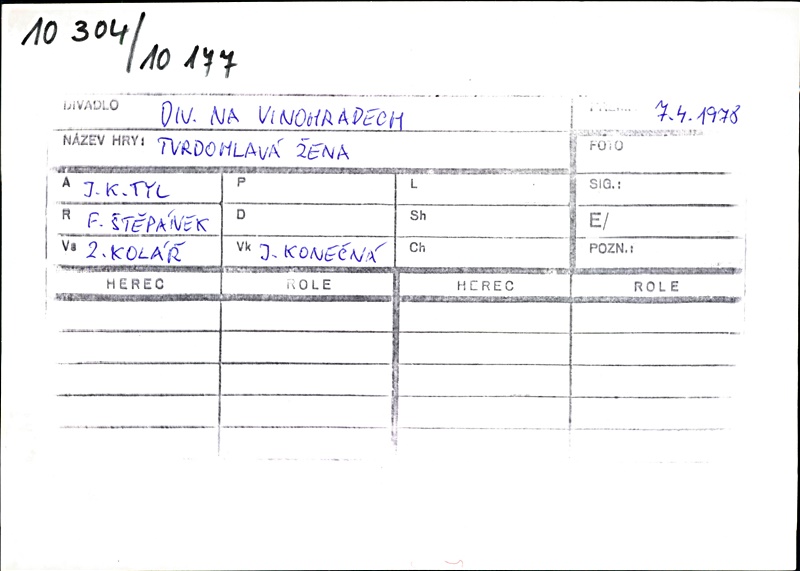 10 304/
10 177
DIVADLO DIV. NA VINOHRADECH 7.4.1978
NÁZEV HRY: TVRDOHLAVÁ ŽENA FOTO
A J.K.TYL P L SIG.:
R F. ŠTĚPÁNEK D Sh E/
Va Z. KOLÁŘ Vk J. KONEČNÁ Ch POZN.:
HEREC ROLE HEREC ROLE